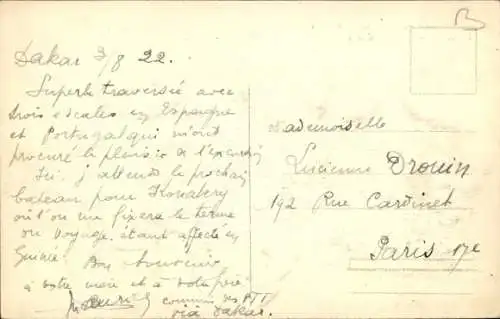 Dakar 3/8 22.
Superbe traversée avec
trois escales en Espagne
et Portugal qui m'ont
procuré le plaisir de l'excursion
Ici j'attends le prochain
bateau pour Konakry
où l'on me fixera le terme
du voyage, étant affecté en
Guinée. Bon souvenir
à votre mère et à votre père
commis des PTT
via Dakar.
Mademoiselle
Lucienne Drouin
192 Rue Cardinet
Paris 17e
B